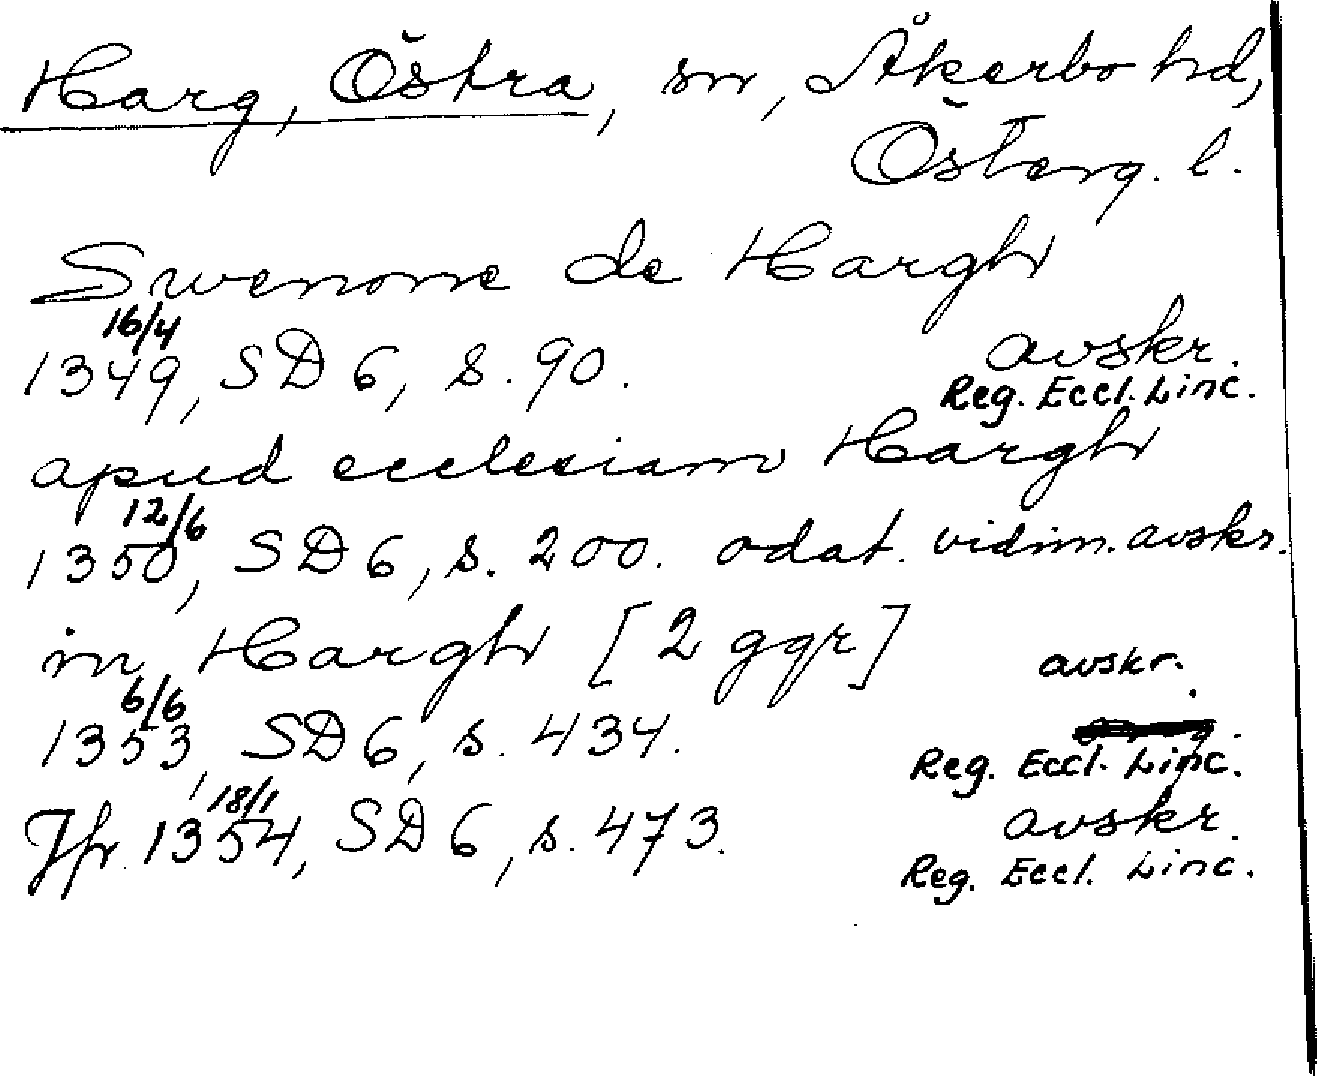 Harg, Östra, sn, Åkerbo hd,
Österg. l.
Swenone de Hargh
16/4
1349, SD 6, s. 90. avskr.
Reg. Eccl. Linc.
apud ecclesiam Hargh
12/6
1350, SD 6, s. 200. odat. vidim. avskr.
in Hargh [2 ggr] avskr.
6/6
1353, SD 6, s. 434.
Reg. Eccl. Linc.
18/1
Jfr. 1354, SD 6, s. 473. avskr.
Reg. Eccl. Linc.